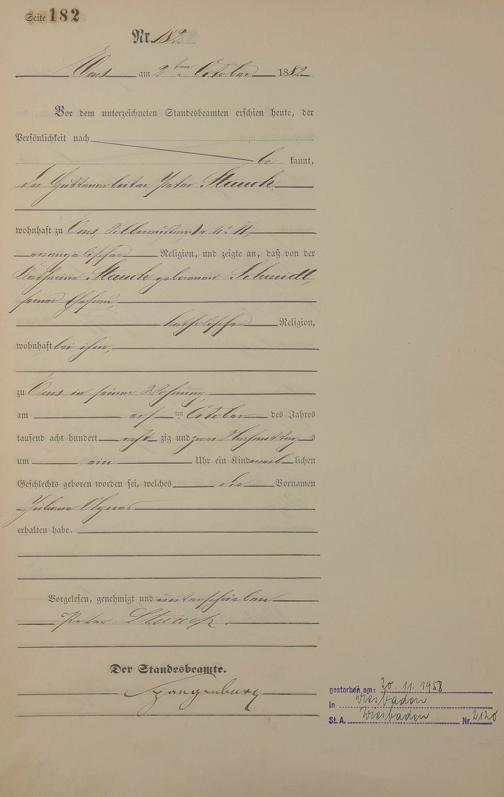 Seite 182
Nr. 182
Ems am 2ten October 1882
Vor dem unterzeichneten Standesbeamten erschien heute, der
Persönlichkeit nach
be kannt,
der Hüttenarbeiter Peter Stauch
wohnhaft zu Ems
evangelischer Religion, und zeigte an, daß von der
Katharina Stauch geborenen Schmidt,
seiner Ehefrau,
katholischer Religion,
wohnhaft bei ihm,
zu Ems in seiner Wohnung
am ersten October des Jahres
tausend acht hundert acht zig und zwei Nachmittags
um ein Uhr ein Kind weib lichen
Geschlechts geboren worden sei, welches die Vornamen
Juliane Agnes
erhalten habe.
Vorgelesen, genehmigt und unterschrieben
Peter Stauch
Der Standesbeamte.
gestorben am: 30.11.1958
in Wiesbaden
St. A. Wiesbaden Nr. 2120